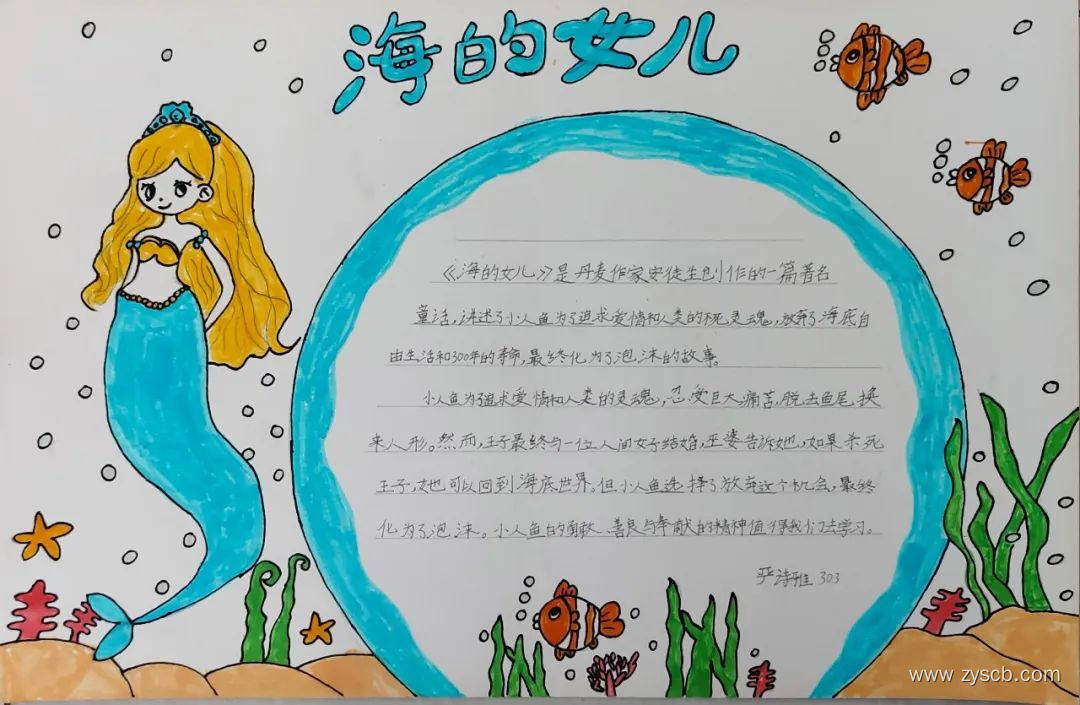 海的女儿
《海的女儿》是丹麦作家安徒生创作的一篇著名
童话,讲述了小人鱼为了追求爱情和人类的不死灵魂,放弃了海底自
由生活和300年的寿命,最终化为了泡沫的故事。
小人鱼为了追求爱情和人类的灵魂,忍受巨大痛苦,脱去鱼尾,换
来人形。然而,王子最终与一位人间女子结婚,巫婆告诉她,如果杀死
王子,她也可以回到海底世界。但小人鱼选择了放弃这个机会,最终
化为了泡沫。小人鱼的勇敢、善良与奉献的精神值得我们去学习。
严诗雅 303
www.zyscb.com